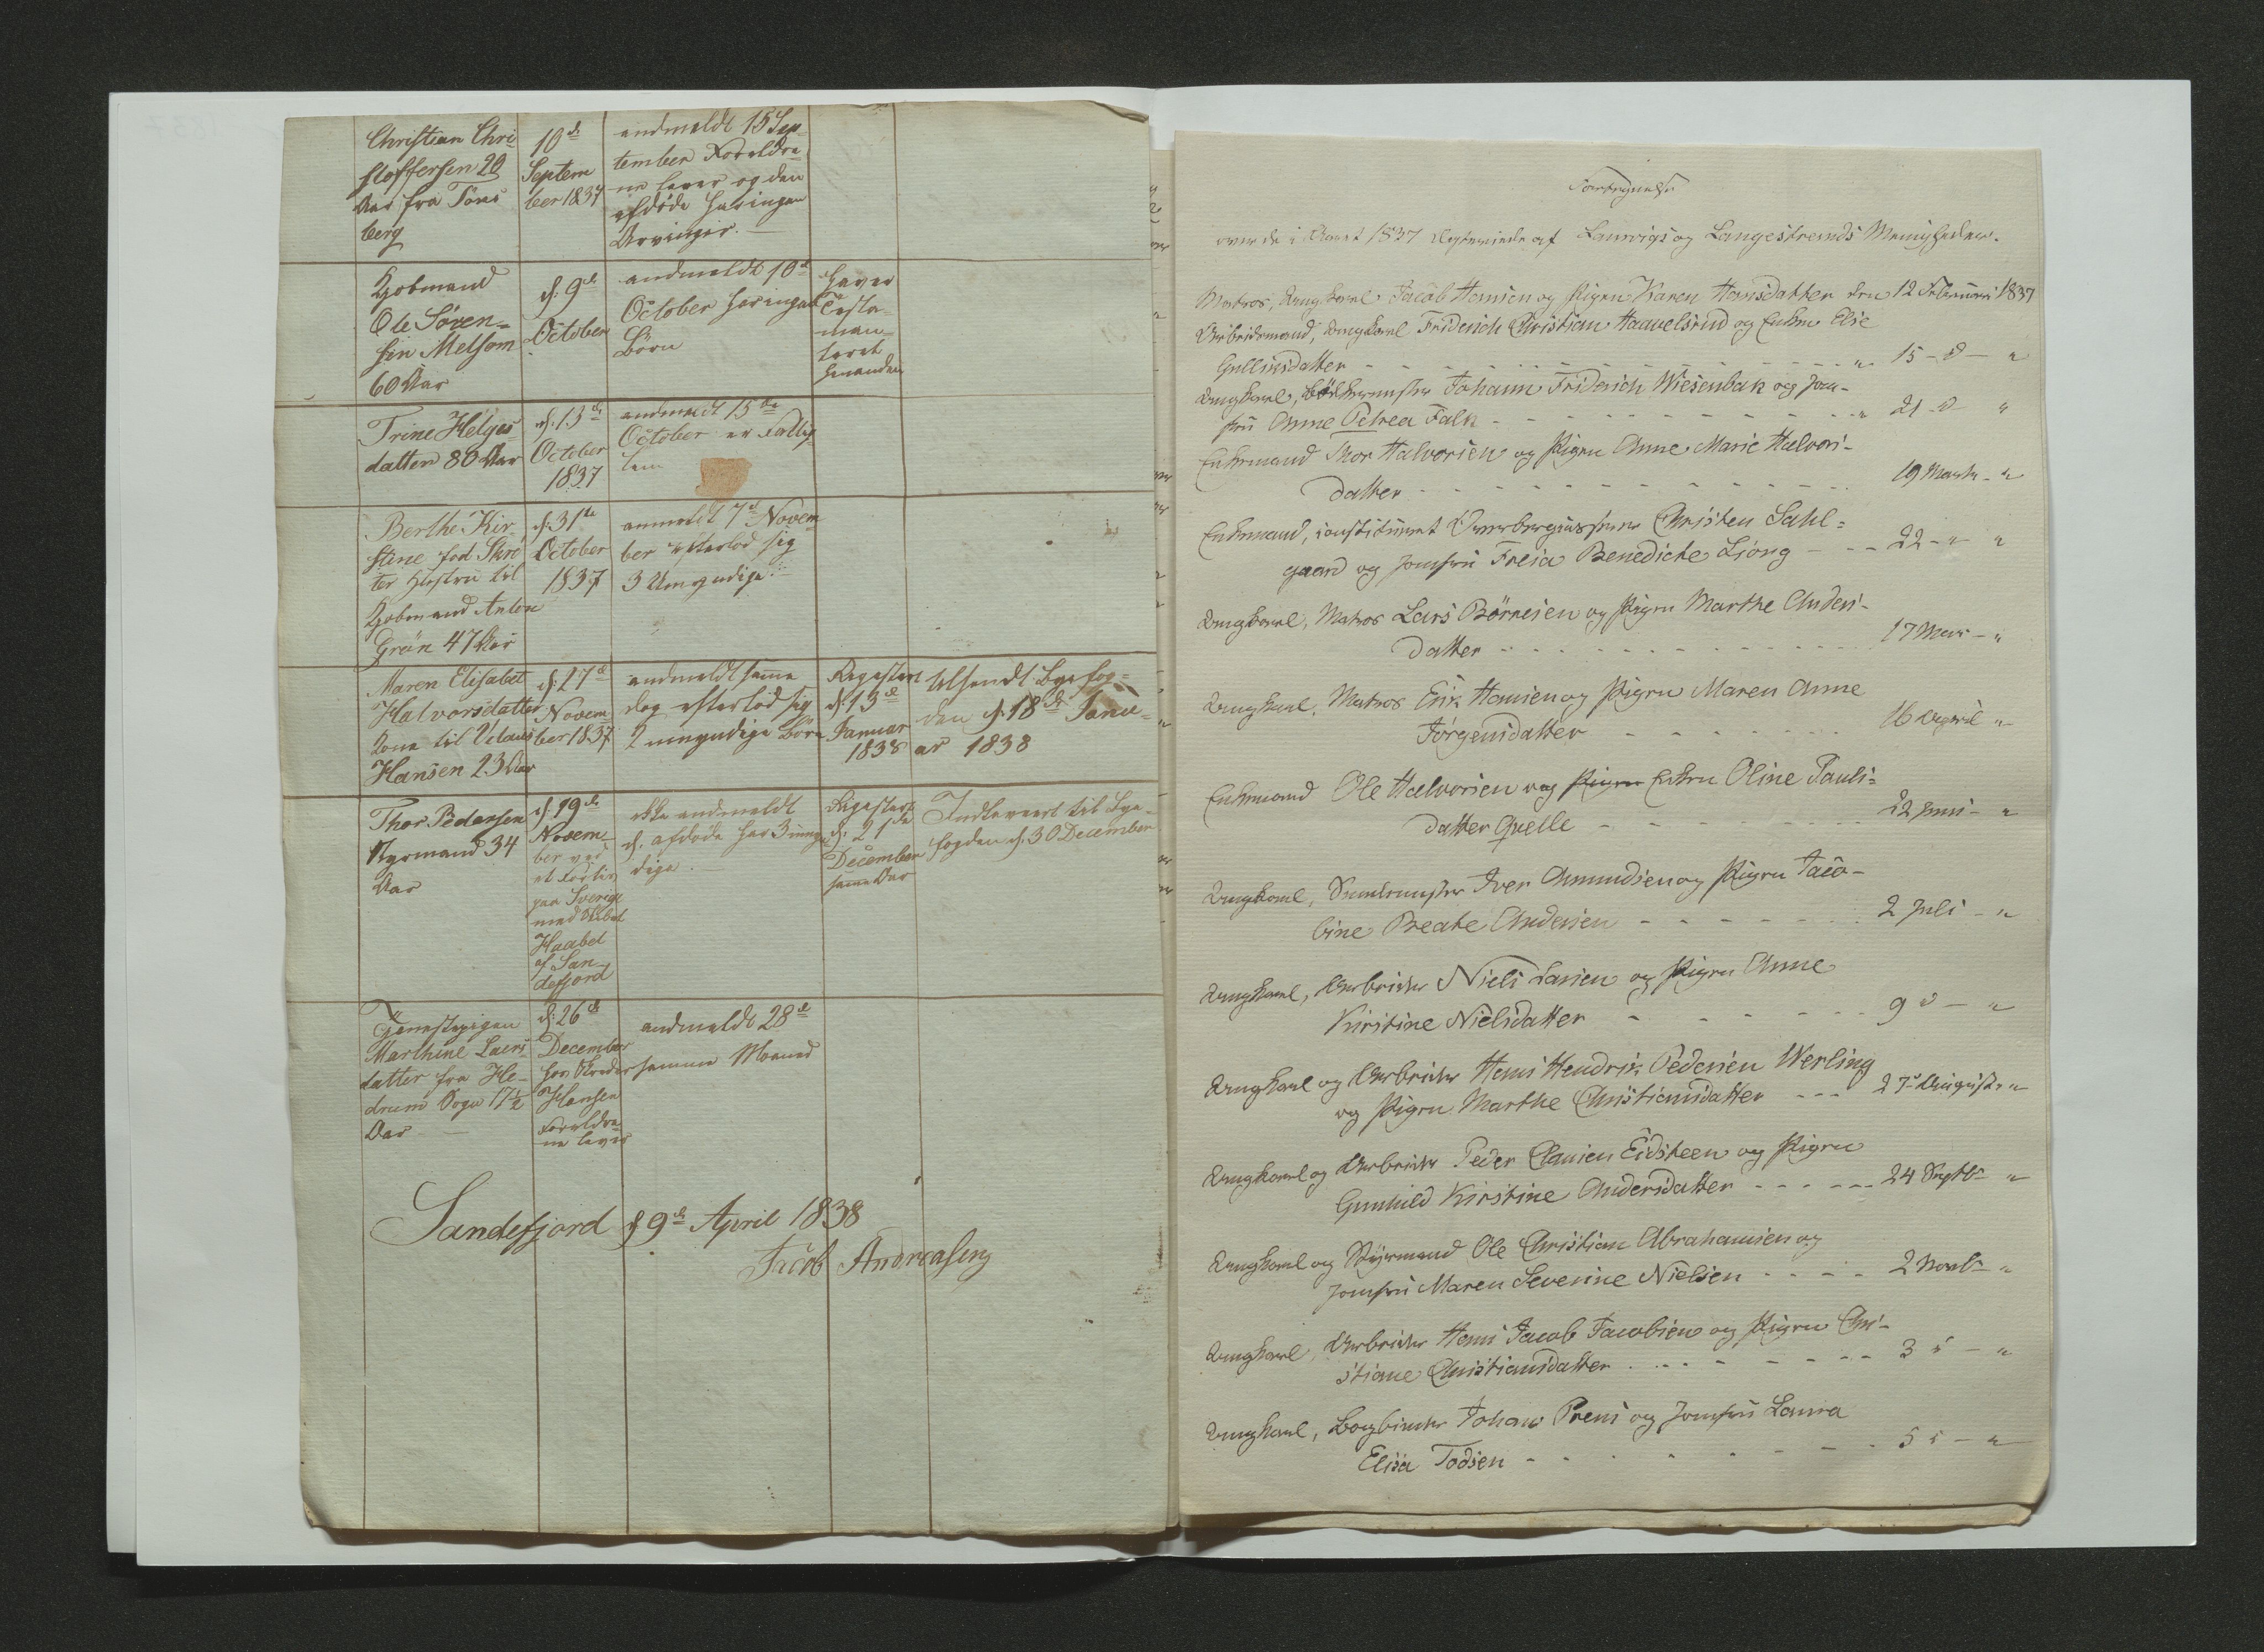 Christian Chri-
stoffersen 20
Aar fra Töns
berg
10de
Septem
ber 1837
andmeldt 15 Sep
tember Forældre
ne lever og den
afdöde har ingen
Arvinger. —
Kjobmand
Ole Sören-
sen Melsom
60 Aar
d. 9de
October
andmeldt 10de
October har ingen
Börn
haver
Testa-
men-
teret
hinanden
Trine Helges
datter 80 Aar
d. 13de
October
1837
andmeldt 15de
October er Fattig
lem
Berthe Kir
stine fød Skrö
ter Hustru til
Kjobmand Anton
Grøn 47 Aar
d. 31te
October
1837
anmeldt 7de Novem
ber efterlod sig
3 Umyndige. —
Maren Elisabet
Halvorsdatter
Kone til Claus
Hansen 23 Aar
d. 27de
Novem-
ber 1837
andmeldt samme
dag efterlod sig
2 umyndige Børn
Registert
d. 13de
Januar
1838
tilsendt Byefog-
den d. 18de Janu-
ar 1838
Thor Pedersen
Styrmand 34
Aar
d. 19de
Novem-
ber ved
et Forliis
paa Sverige
med Skibet
Haabet
af San-
defjord
ikke andmeldt
d. afdøde har 3 umyn
dige. —
Registert
d. 21de
December
samme Aar
Indleveret til Bye-
fogden d. 30 December
Tjenestepigen
Marthine Lars-
datter fra He-
drum Sogn 17½
Aar —
d. 26de
December
hos Skreder
Hansen
Forældre
ne lever
andmeldt 28de
samme Maaned
Sandefjord d 9de April 1838
Jacob Andreasen
Fortegnelse
over de i Aaret 1837 Egteviede af Laurvigs og Langestrands Menigheder.
Matros, Ungkarl Jacob Hansen og Pigen Karen Hansdatter den 12 Februari 1837
Arbeidsmand, Ungkarl Friderich Christian Haavelsrud og Enken Else
Gulliksdatter - - - " 15 - d - "
Ungkarl, Bödkermester Johann Friderich Wiesenbak og Jom-
fru Anne Petrea Falk - - - " 21 - d - "
Enkemand Thor Halvorsen og Pigen Anne Marie Halvors-
datter - - - 19 Marts - "
Enkemand, constitueret Christen Sahl=
gaard og Jomfru Freia Benedicte Ljong - - - 22 - " - "
Ungkarl, Matros Lars Börresen og Pigen Marthe Anders-
datter - - - 17 Mars - "
Ungkarl, Matros Erik Hansen og Pigen Maren Anne
Jörgensdatter - - - 16 April "
Enkemand Ole Halvorsen og Pigen Enken Oline Pauls=
datter Qvelle - - - 22 Juni - "
Ungkarl, Snedkermester Iver Amundsen og Pigen Jaco-
bine Beate Andersen - - - 2 Juli - "
Ungkarl, Arbeider Niels Larsen og Pigen Anne
Kirstine Nielsdatter - - - 9 d - "
Ungkarl og Arbeider Hans Hendrik Pedersen Werling
og Pigen Marthe Christiansdatter - - - 27 August - "
Ungkarl og Arbeider Peder Clausen Eidsteen og Pigen
Gunhild Kirstine Andersdatter - - - 24 Septb - "
Ungkarl og Styrmand Ole Christian Abrahamsen og
Jomfru Maren Severine Nielsen - - - 2 Novb - "
Ungkarl, Arbeider Hans Jacob Jacobsen og Pigen Chri-
stiane Christiansdatter - - - 3 d - "
Ungkarl, Bogbinder Johan Preus og Jomfru Laura
Elisa Todsen - - - 5 d - "